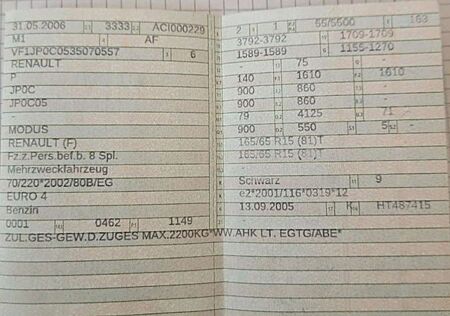 31.05.2006 3333 ACI000229
M1 AF
VF1JP0C0535070557 6
RENAULT
P
JP0C
JP0C05
-
MODUS
RENAULT (F)
Fz.z.Pers.bef.b. 8 Spl.
Mehrzweckfahrzeug
70/220*2002/80B/EG
EURO 4
Benzin
0001 0462 1149
ZUL.GES-GEW.D.ZUGES MAX.2200KG*WW.AHK LT. EGTG/ABE*
2 1 55/5500 163
3792-3792 1709-1709
1589-1589 1155-1270
- 75 -
140 1610 1610
900 860 -
900 860 -
79 4125 71
900 550 5 -
165/65 R15 (81)T
165/65 R15 (81)T
-
Schwarz 9
e2*2001/116*0319*12
13.09.2005 K HT487415